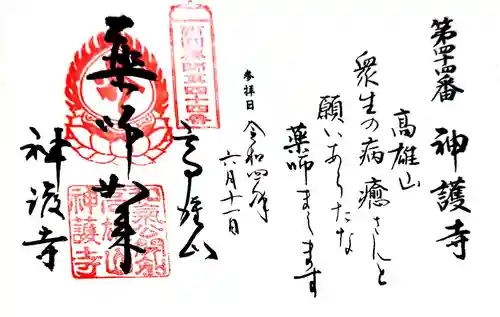 第四十四番 神護寺
高雄山
衆生の病 癒さんと
願いあらたな
薬師まします
参拝日 令和四年
六月十一日
西国薬師第四十四番
高雄山
薬師如来
神護寺
神護寺